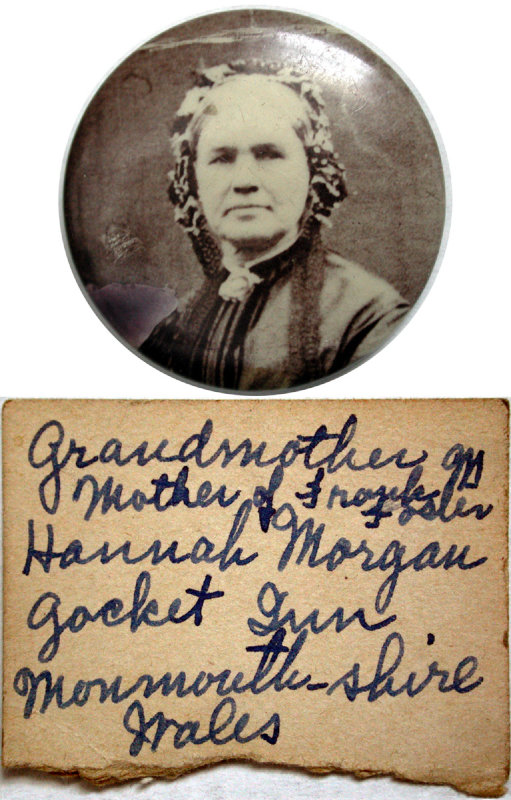 Grandmother
Mother of Frank Foster
Hannah Morgan
Gocket Inn
Monmouth-shire
Wales